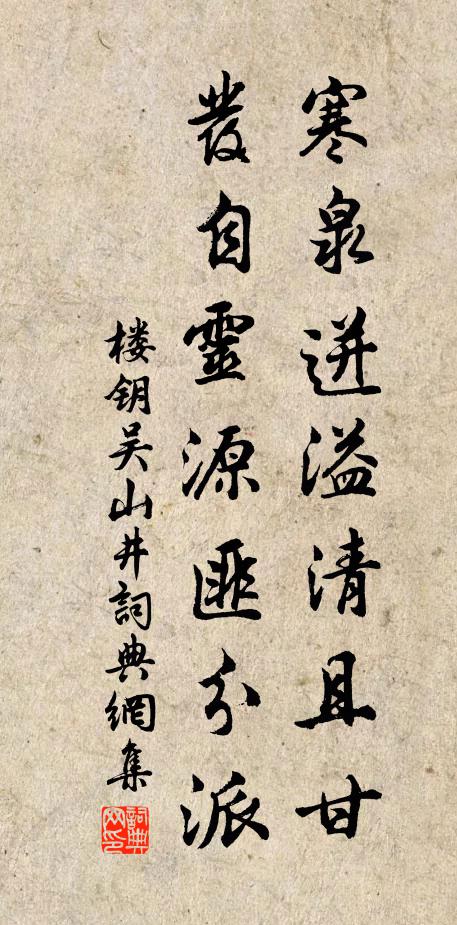 寒泉迸溢清且甘
發自靈源匪分派
楼钥吴山井詞典網集
詞典网印